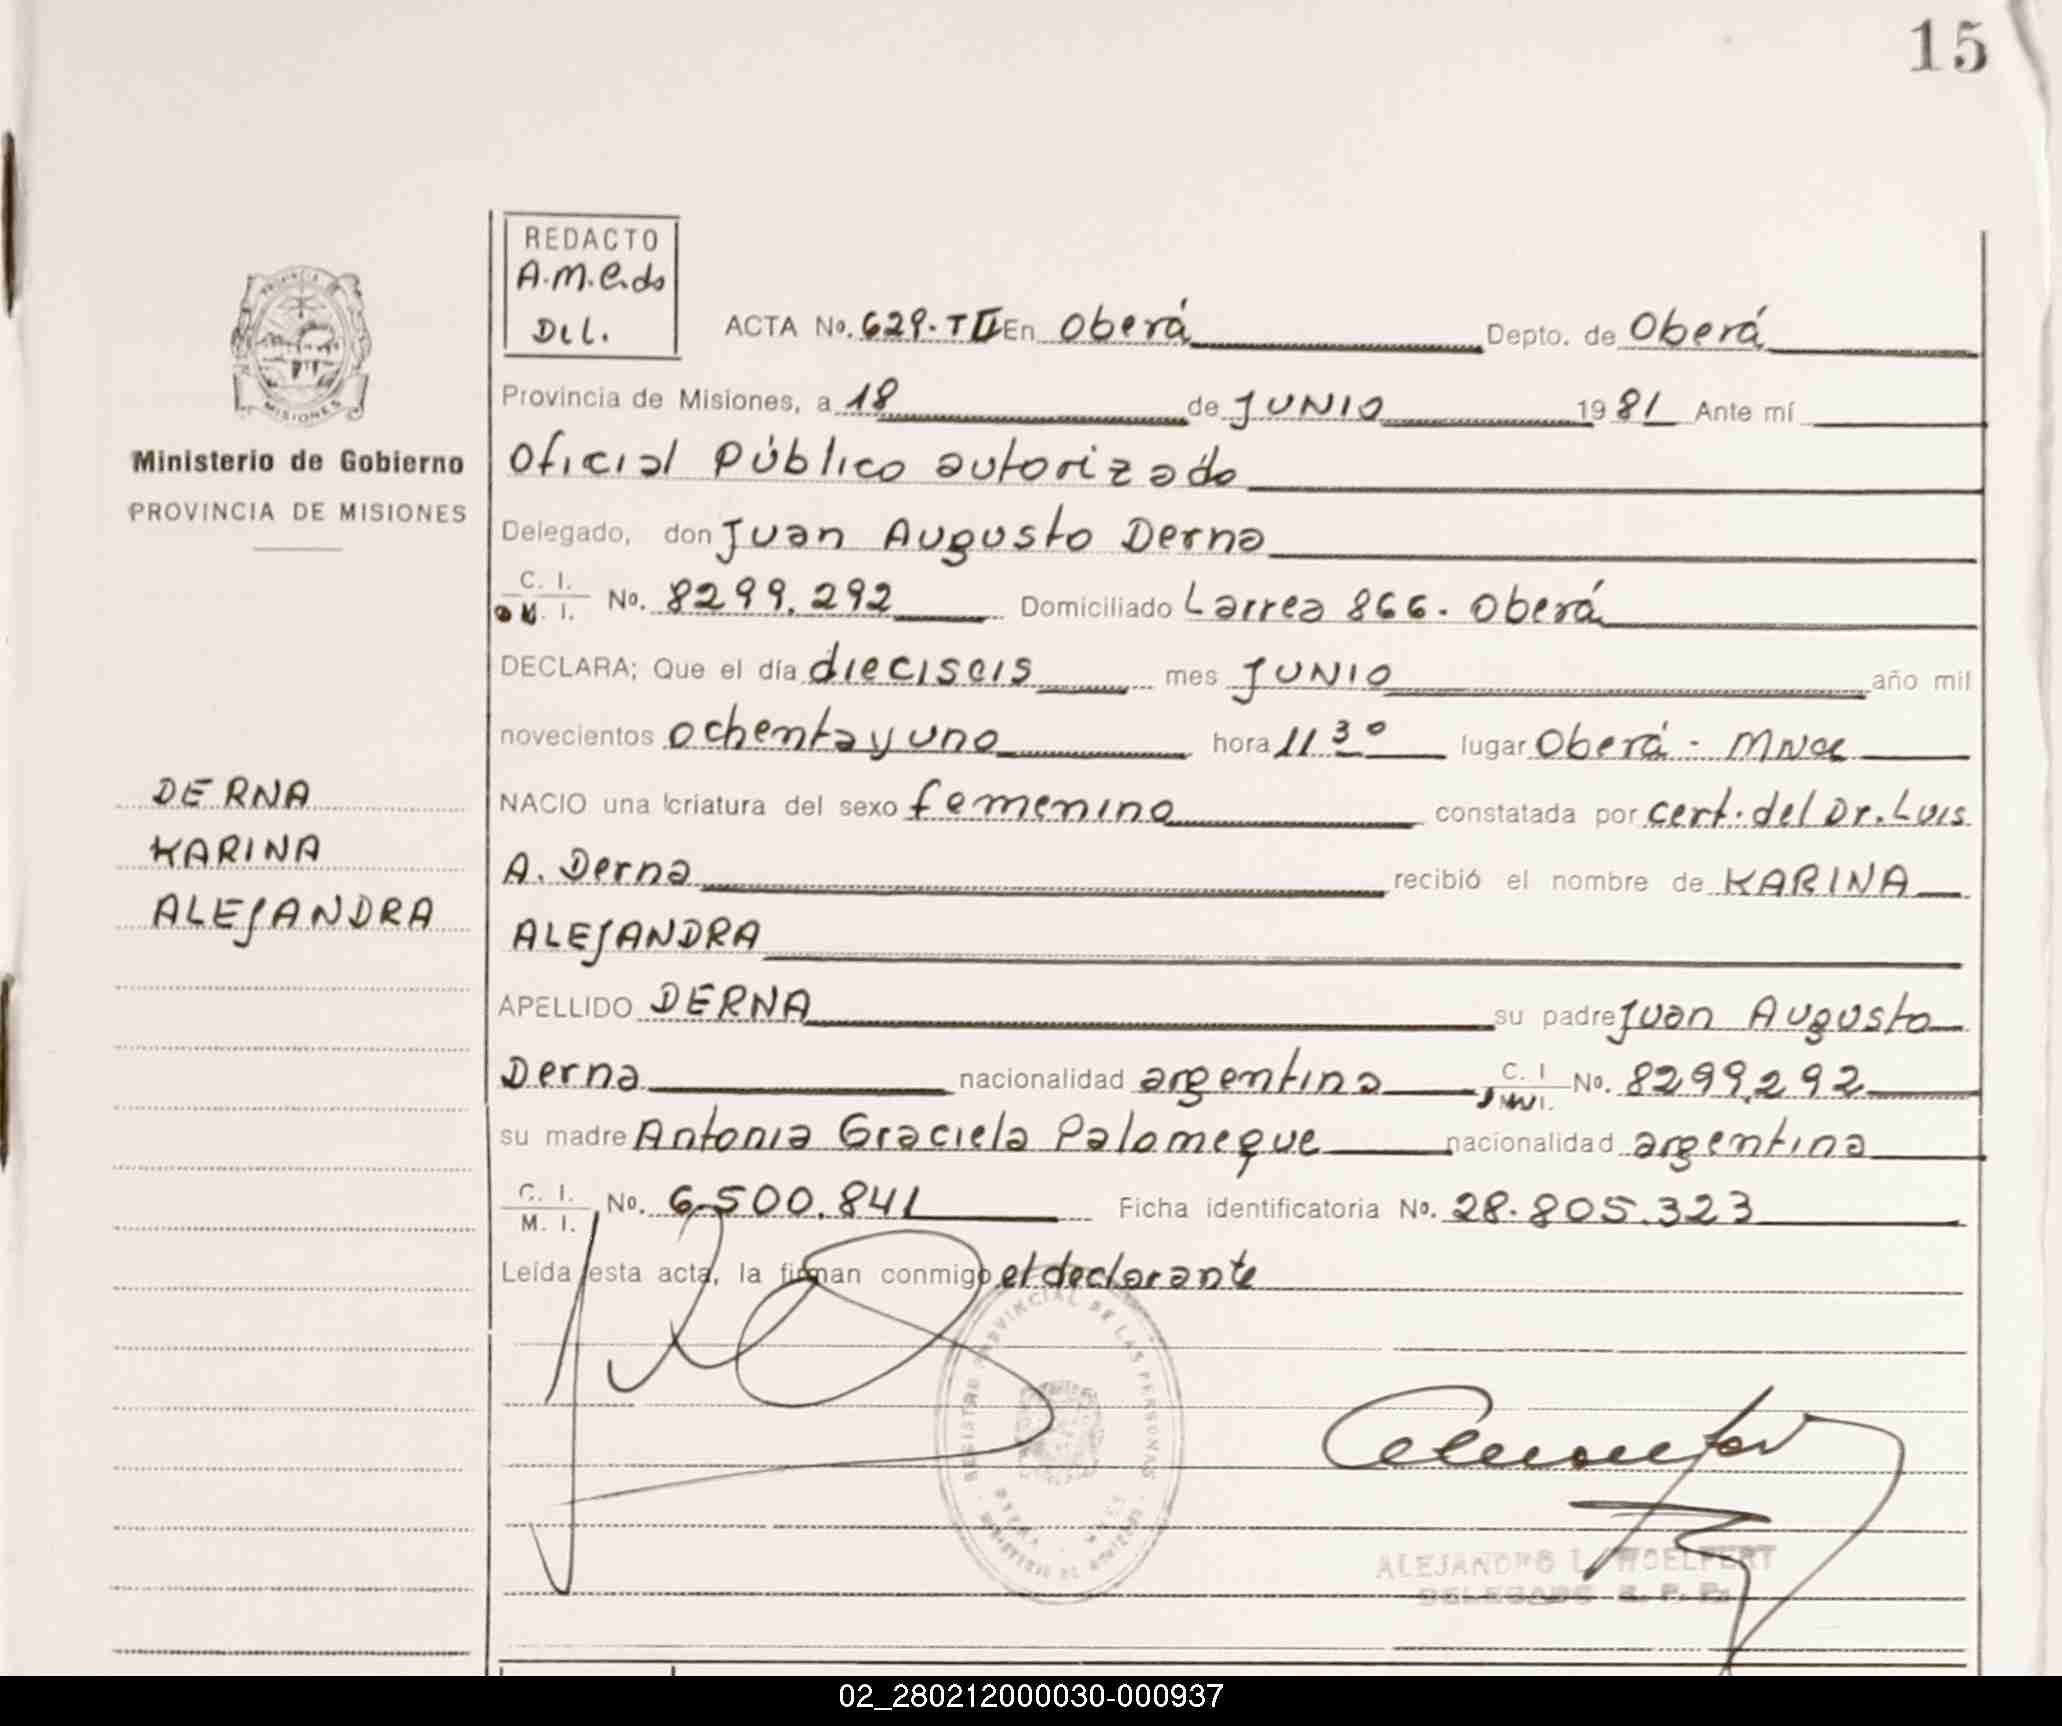 15
REDACTO
A.M.C.do
Del.
ACTA No. 629.TII En Oberá Depto. de Oberá
Provincia de Misiones, a 18 de JUNIO 1981 Ante mí
Ministerio de Gobierno
PROVINCIA DE MISIONES
Oficial Público autorizado
Delegado, don Juan Augusto Derna
C. I.
M. I. No. 8299.292 Domiciliado Larrea 866. Oberá
DECLARA; Que el día dieciseis mes JUNIO año mil
novecientos ochenta y uno hora 11 30 lugar Oberá - Mnes
DERNA
KARINA
ALEJANDRA
NACIO una criatura del sexo femenino constatada por cert. del Dr. Luis
A. Derna recibió el nombre de KARINA
ALEJANDRA
APELLIDO DERNA su padre Juan Augusto
Derna nacionalidad argentina C. I
M. I. No. 8299.292
su madre Antonia Graciela Palomeque nacionalidad argentina
C. I.
M. I. No. 6.500.841 Ficha identificatoria No. 28.805.323
Leída esta acta, la firman conmigo el declarante
REGISTRO PROVINCIAL DE LAS PERSONAS
ALEJANDRO L. WOELFERT
DELEGADO R. P. Ps
02_280212000030-000937